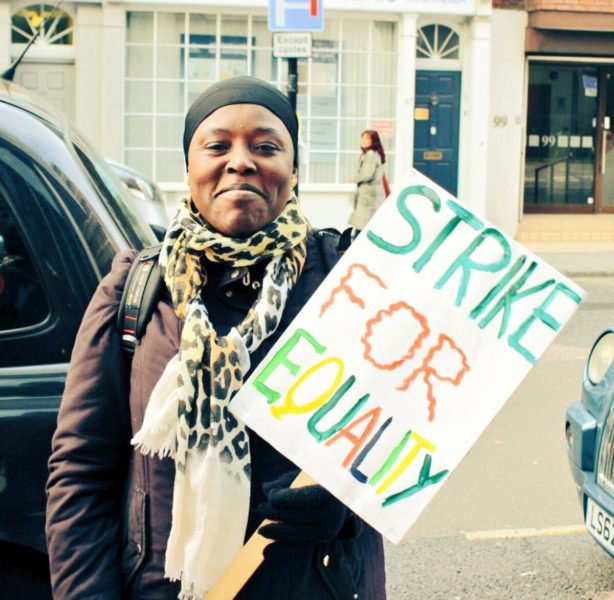 Except
cycles
99
99
STRIKE
FOR
EQUALITY